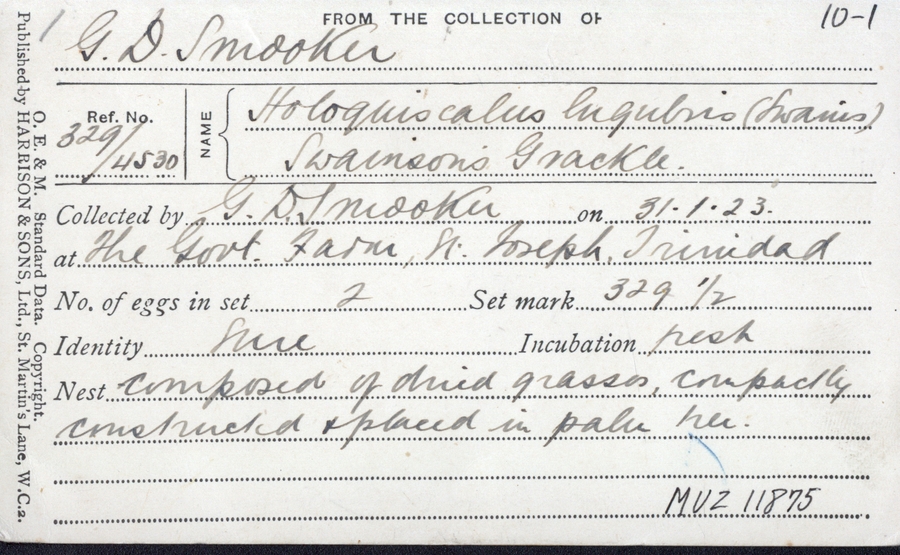 FROM THE COLLECTION OF
10-1
G. D. Smooker
Ref. No.
329/4530
NAME
Holoquiscalus lugubris (Swains)
Swainson's Grackle.
Collected by G. D. Smooker on 31.1.23.
at The Govt. Farm, St. Joseph, Trinidad
No. of eggs in set 2 Set mark 329 1/2
Identity Sure Incubation fresh
Nest composed of dried grasses, compactly
constructed & placed in palm tree.
MVZ 11875
O. E. & M. Standard Data. Copyright.
Published by HARRISON & SONS, Ltd., St. Martin's Lane, W.C.2.